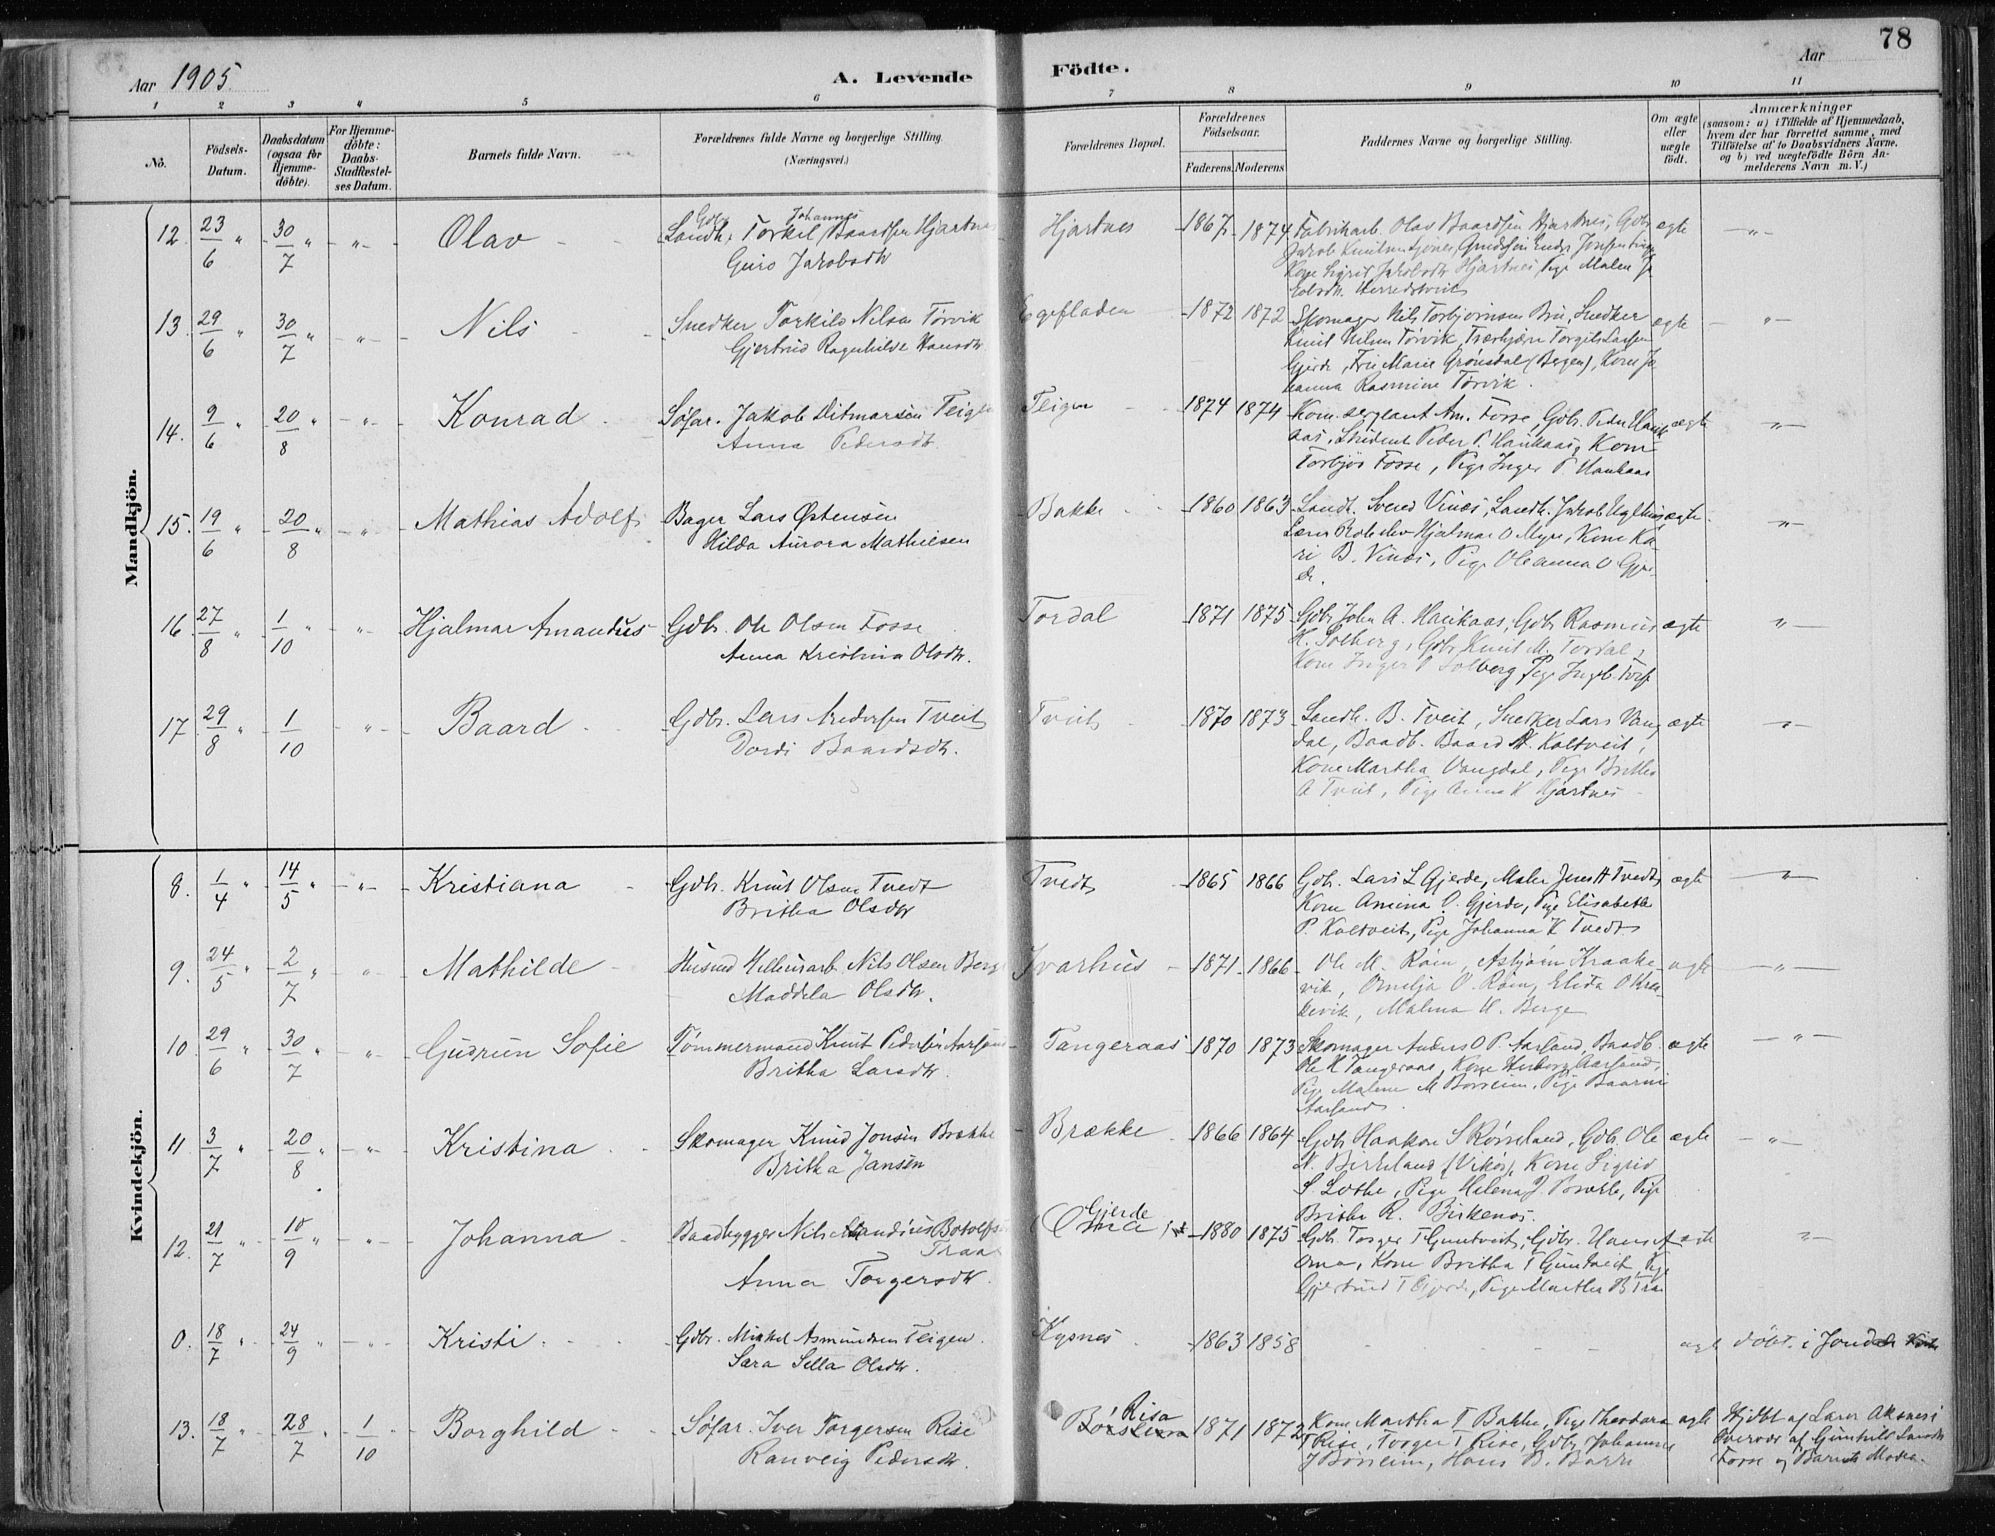 78
Aar 1905.
A. Levende Födte.
Aar
1 2 3 4 5 6 7 8 9 10 11
No.
Födsels-Datum.
Daabsdatum (ogsaa for Hjemme-döbte).
For Hjemme-döbte: Daabs-Stadfæstel-ses Datum.
Barnets fulde Navn.
Forældrenes fulde Navne og borgerlige Stilling. (Næringsvei.)
Forældrenes Bopæl.
Forældrenes Födselsaar.
Faderens. Moderens
Faddernes Navne og borgerlige Stilling.
Om ægte eller uægte födt.
Anmærkninger
(saasom: a) i Tilfælde af Hjemmedaab, hvem der har forrettet samme, med Tilföielse af to Daabsvidners Navne, og b) ved uægtefödte Börn An-melderens Navn m. V.)
Mandkjön.
12. 23/6 " 30/7 " - " - Olav
Johannes
Torkil Baardsen Hjartnes
Guro Jakobsdtr
Hjartnes 1867 1874
Fabrikarb. Olav Baardsen Hjartnes, Gdb.
Kone Sigrid Jakobsdtr Hjartnes, Pige Malen
ægte - " -
13. 29/6 " 30/7 " - " - Nils
Snedker Torkils Nilsen Törvik
Gjertrud Ragnhilde Hansdtr.
Egefladen 1872 1872
Skomager Nils Torbjornsen Bru, Snedker
Knut Nilsen Törvik, Torgils Larsen
Gjerde, Fru Marie Grönsdal (Bergen), Kone Jo
hanna Rasmine Törvik.
ægte - " -
14. 9/6 " 20/8 " - " - Konrad
Söfar. Jakob Ditmarsen Teigen
Anna Pedersdtr.
Teigen 1874 1874
Kom.sergeant Am. Fosse, Gdb. Peder Hauk
aas, Student Peder P. Haukaas, Kone
Torbjör Fosse, Pige Inger P. Haukaas
ægte - " -
15. 19/6 " 20/8 " - " - Mathias Adolf
Bager Lars Østensen
Hilda Aurora Mathiesen
Bakke 1860 1863
Landh. Svend Vinæs, Landh. Jakob
Hjalmar O Myre, Kone Ka
ri B. Vinæs, Pige Oleanna O Gjer
de.
ægte - " -
16. 27/8 " 1/10 " - " - Hjalmar Amandus
Gdbr. Ole Olsen Fosse
Anna Kristina Olsdtr.
Tordal 1871 1875
Gdb. John A. Haukaas, Gdb. Rasmus
H. Solberg, Gdb. Knut M. Tordal,
Kone Inger O Solberg Pige Ingeb.
ægte - " -
17. 29/8 " 1/10 - " - Baard
Gdbr. Lars Andersen Tveit
Dordi Baardsdtr.
Tveit 1870 1873
Landh. B. Tveit, Snedker Lars Vang
dal, Baadb. Baard H. Kaltveit,
Kone Martha Vangdal, Pige Britha
A Tveit, Pige Anna K Hjartnes
ægte - " -
Kvindekjön.
8. 1/4 " 14/5 " - " - Kristiana
Gdb. Knut Olsen Tvedt
Britha Olsdtr
Tvedt 1865 1866
Gdb. Lars L Gjerde, Maler Jens H Tvedt,
Kone Amina O. Gjerde, Pige Elisabeth
P. Kaltveit, Pige Johanna K Tvedt
ægte - " -
9. 24/5 " 2/7 " - " - Mathilde
Nils Olsen Berge
Maddela Olsdtr.
Ivarhus 1871 1866
Ole M. Röin, Asbjörn Kraake
vik, Ornelja O. Röin, Elida O Kraa
kevik, Malena H. Berge
ægte - " -
10. 29/6 " 30/7 " - " - Gudrun Sofie
Tömmermand Knut Pedersen Aarsand
Britha Larsdtr.
Tangeraas 1870 1873
Skomager Anders O P. Aarsand, Baadb.
Ole K Tangeraas, Kone Herborg Aarsand,
Pige Malene M Börsheim, Pige
Aarsand.
ægte - " -
11. 3/7 " 20/8 " - " - Kristina
Skomager Knud Jonsen Brække
Britha Jansen
Brække 1866 1864
Gdb. Haakon S Rörseland, Gdb. Ole
N. Birkeland (Vikör), Kone Sigrid
S. Lothe, Pige Helena J. Brække, Pige
Britha R. Birkenes.
ægte - " -
12. 21/7 " 10/9 " - " - Johanna
Baadbygger Nils Botolfs
Traa
Anna Torgersdtr.
Gjerde
(Oma) 1880 1875
Gdb. Torger T Guntveit, Gdbr. Hans A
Oma, Kone Britha T Guntveit, Pige
Gjertrud T Gjerde, Pige Martha B Traa
ægte - " -
0. 18/7 " 24/9 " - " - Kristi
Gdbr. Mikkel Asmundsen Teigen
Sara Sella Olsdtr.
Kysnes 1863 1858
ægte döbt i Jondal
13. 18/7 " 28/7 " 1/10 Borghild
Söfar. Iver Torgersen Rise
Ranveig Pedersdtr.
Risa
1871 1872
Kone Martha T Bakke, Pige Theodora
T Rise, Torger T Rise, Gdbr Johannes
J Börsheim, Hans B.
ægte
Hjdbt af Lærer Aksnes i
Overvær af Gunhild
Fosse og Barnets Moder.